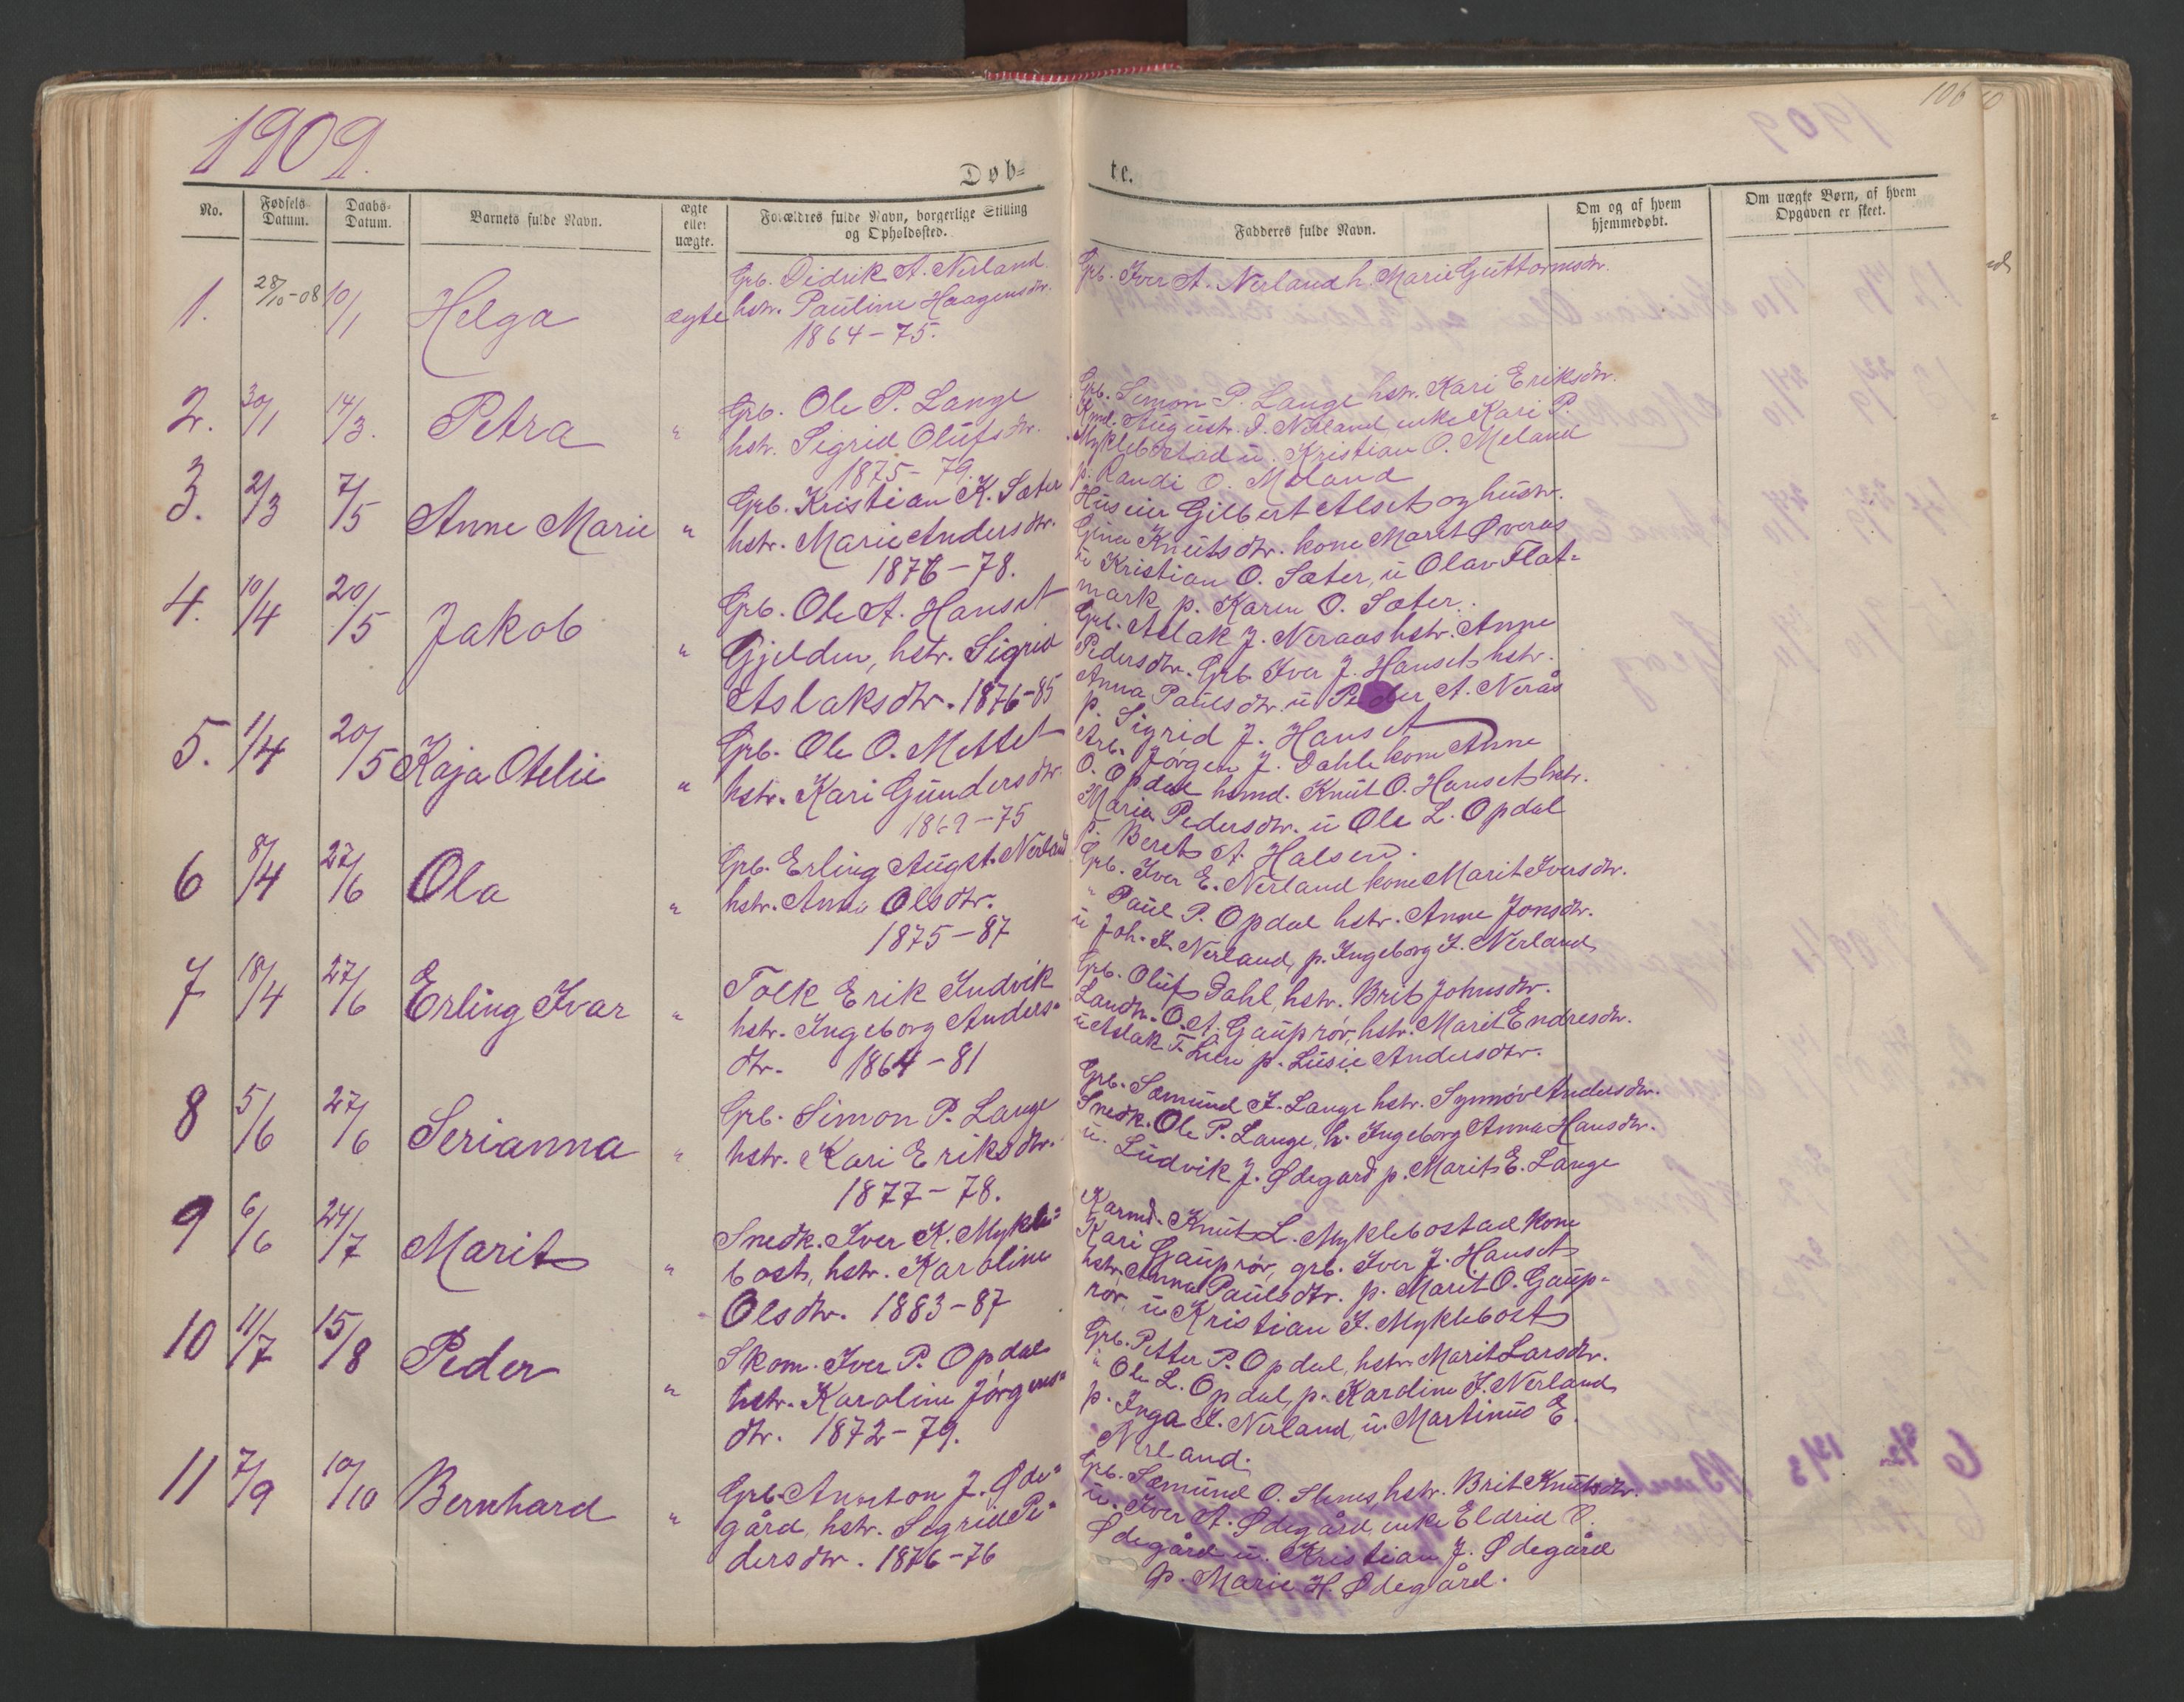 1909.
106
Døb=
te.
No.
Fødsels
Datum.
Daabs-
Datum.
Barnets fulde Navn.
ægte
eller
uægte.
Forældres fulde Navn, borgerlige Stilling
og Opholdssted.
Fadderes fulde Navn.
Om og af hvem
hjemmedøbt.
Om uægte Børn, af hvem
Opgaven er skeet.
1. 28/10-08 10/1 Helga ægte
Grb. Didrik A. Nerland
hstr. Pauline Haagensdr.
1864-75.
Grb. Iver A. Nerland h. Marie Guttormsdr.
2. 30/1 14/3. Petra "
Grb. Ole P. Lange
hstr. Sigrid Olufsdr.
1875-79.
Grb. Simon P. Lange hstr. Kari Eriksdr.
August. I. Nerland, enke Kari P.
Myklebostad u. Kristian O. Meland
p. Randi O. Meland
3. 2/3 7/5 Anne Marie "
Grb. Kristian K. Sæter
hstr. Marie Andersdtr.
1876-78.
Huseier Gilbert Alset og hustr.
Gina Knutsdtr. kone Marit Øveraas
u Kristian O. Sæter, u Olav Flat=
mark, p. Karen O. Sæter.
4. 10/4 20/5 Jakob "
Grb. Ole A. Hanset
Gjelden, hstr. Sigrid
Aslaksdtr. 1876-85
Grb. Aslak J. Neraas hstr. Anne
Pedersdtr. Grb. Iver J. Hanset hstr.
Anna Paulsdtr. u Peder A. Nerås
p. Sigrid J. Hanset
5. 1/4 20/5 Kaja Otelie "
Grb. Ole O. Mettet
hstr. Kari Gundersdtr
1869-75
Arb. Jørgen J. Dahle kone Anne
O. Opdal hsmd. Knut O. Hanset hstr.
Maria Pedersdtr. u Ole L. Opdal
p. Beret A. Halsen.
6 8/4 27/6 Ola "
Grb. Erling Augst. Nerland
hstr. Anna Olsdtr.
1875-87
Grb. Iver E. Nerland kone Marit Iversdtr.
" Paul P. Opdal hstr. Anne Jonsdtr.
u Joh. I. Nerland, p. Ingeborg I. Nerland
7 18/4 27/6 Erling Ivar "
Tolk Erik Indvik
hstr. Ingeborg Anders=
dtr. 1864-81
Grb. Oluf Dahl, hstr. Brit Johnsdtr.
Landh. O. A. Gauprør, hstr. Marit Endresdtr.
u Aslak T. Lien p. Lusie Andersdtr.
8 5/6 27/6 Serianna "
Grb. Simon P. Lange
hstr. Kari Eriksdtr.
1877-78.
Grb. Sæmund I. Lange hstr. Synnøve Andersdtr.
Snedk. Ole P. Lange, h. Ingeborg Anna Hansdtr.
u. Ludvik J. Ødegard p. Marit E. Lange
9 6/6 24/7 Marit "
Snedk. Iver K. Mykle=
bost, hstr. Karoline
Olsdtr. 1883-87
Karmd. Knut L. Myklebostad kone
Kari Gauprør, grb. Iver J. Hanset
hstr. Anna Paulsdtr. p. Marit O. Gaup=
rør, u Kristian I. Myklebost
10 11/7 15/8 Peder "
Skom. Iver P. Opdal
hstr. Karoline Jørgens=
dtr. 1872-79.
Grb. Petter P. Opdal, hstr. Marit Larsdtr.
" Ole L. Opdal, p. Karoline I. Nerland
p. Inga I. Nerland, u. Martinus E.
Nerland.
11 7/9 10/10 Bernhard "
Grb. Annton J. Øde=
gård, hstr. Sigrid Pe=
dersdtr. 1876-76
Grb. Sæmund O. Stenes, hstr. Brit Knutsdtr.
u. Iver A. Ødegård, enke Eldrid O.
Ødegård u. Kristian J. Ødegård
p. Marie H. Ødegård.